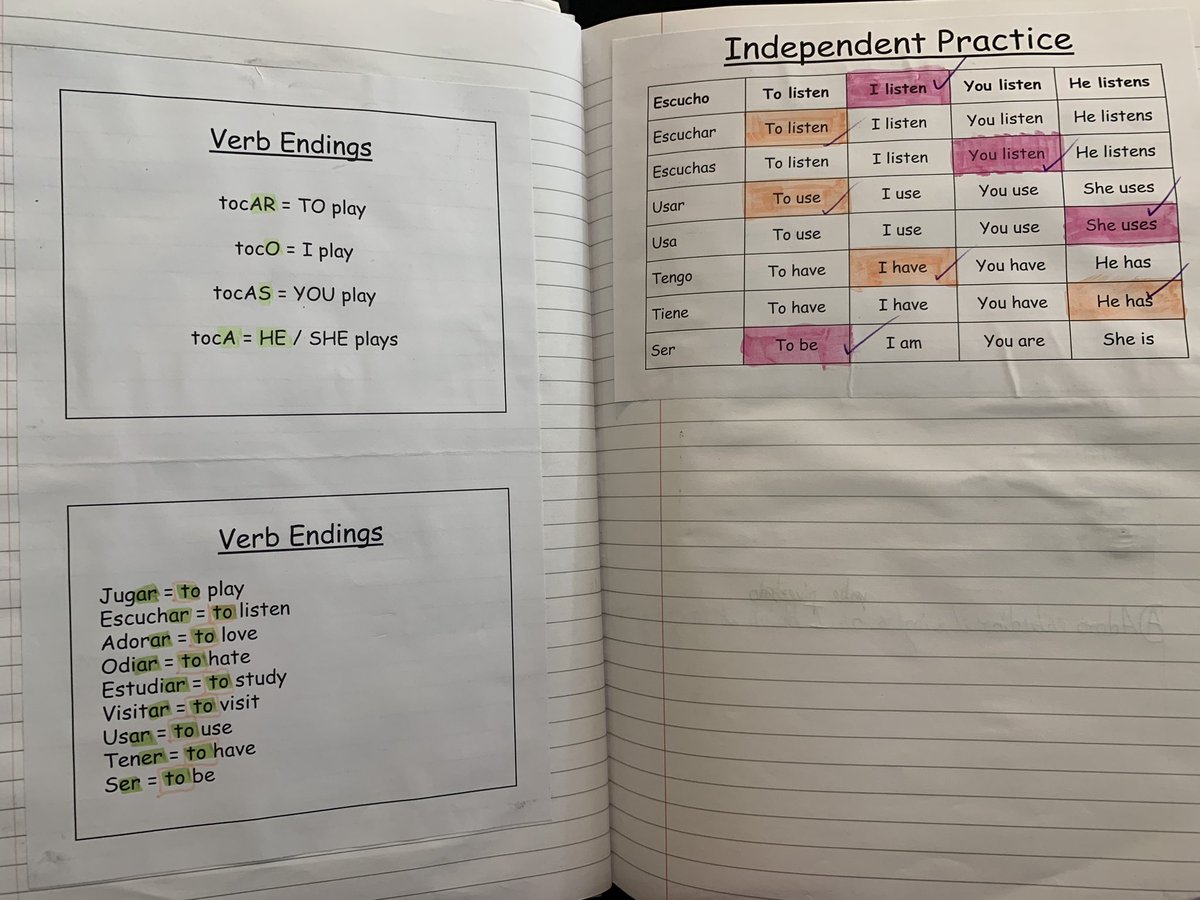 Verb Endings
tocAR = TO play
tocO = I play
tocAS = YOU play
tocA = HE / SHE plays
Verb Endings
Jugar = to play
Escuchar = to listen
Adorar = to love
Odiar = to hate
Estudiar = to study
Visitar = to visit
Usar = to use
Tener = to have
Ser = to be
Independent Practice
Escucho To listen I listen You listen He listens
Escuchar To listen I listen You listen He listens
Escuchas To listen I listen You listen He listens
Usar To use I use You use She uses
Usa To use I use You use She uses
Tengo To have I have You have He has
Tiene To have I have You have He has
Ser To be I am You are She is